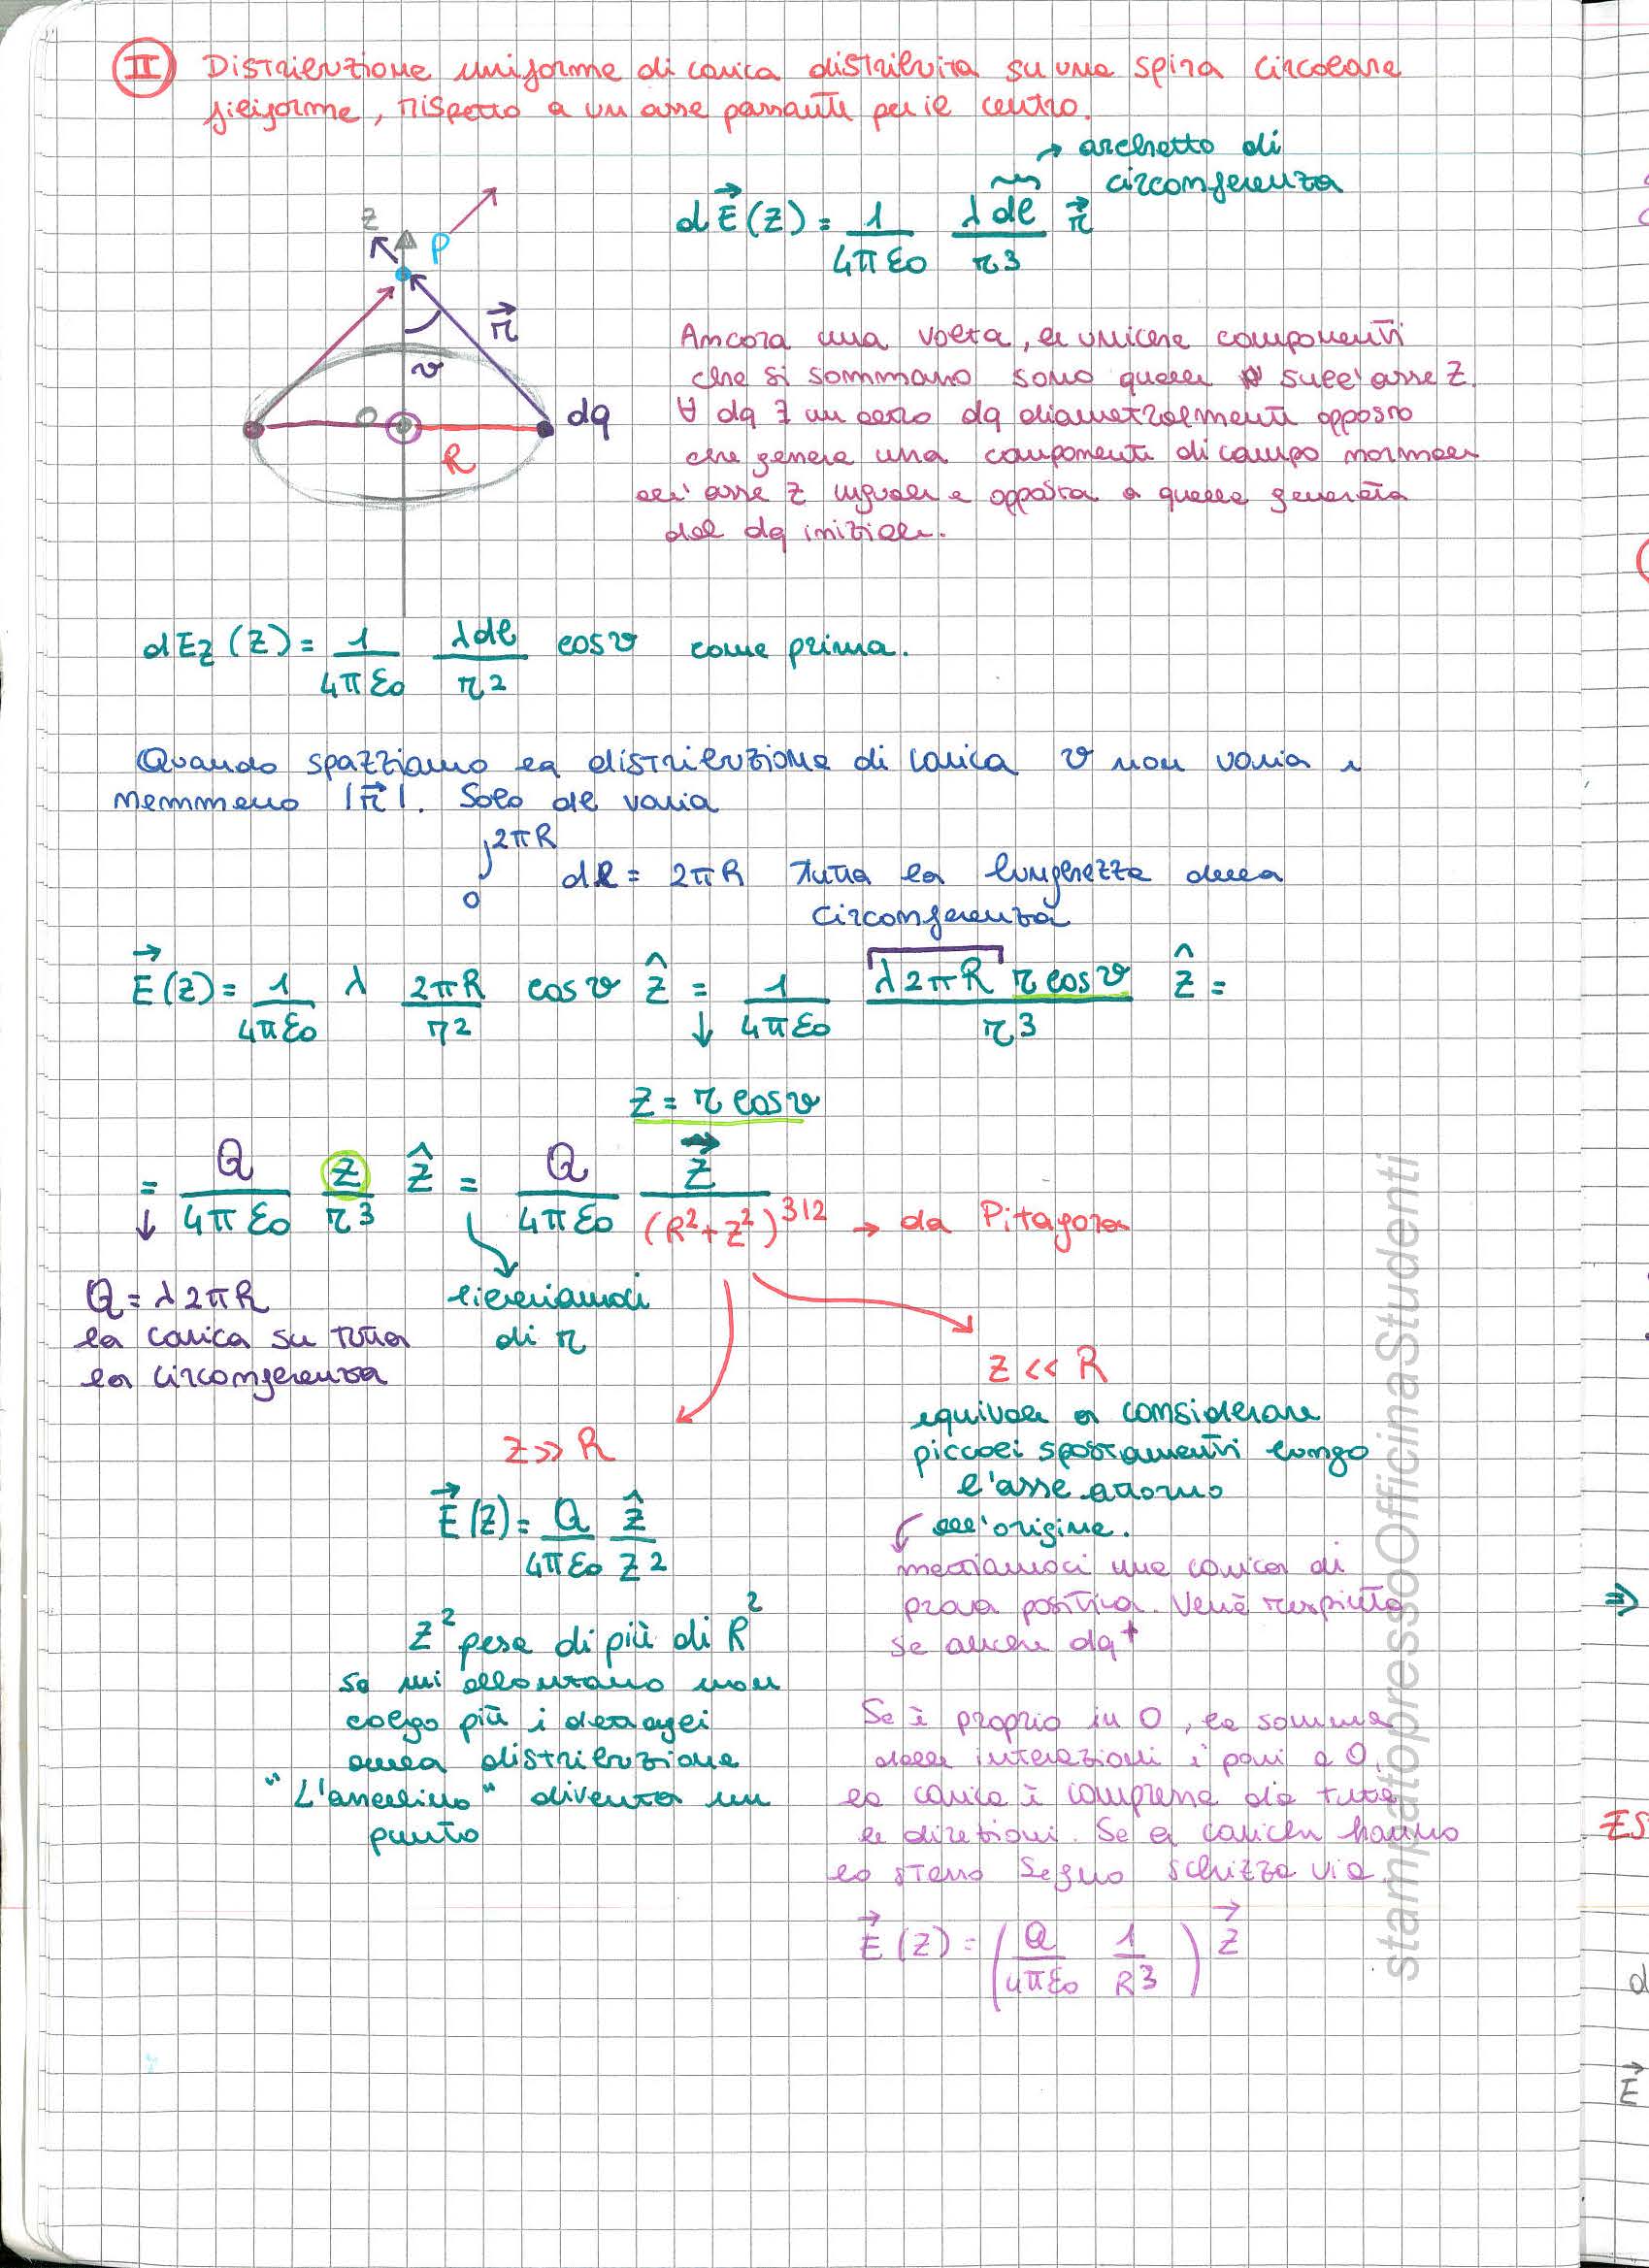 II Distribuzione uniforme di carica distribuita su una spira circolare
filiforme, rispetto a un asse passante per il centro.
→ archetto di
circonferenza
dE⃗(z) = 1/(4πε₀) λdl/r³ r⃗
z
P
r⃗
ϑ
O
dq
R
Ancora una volta, le uniche componenti
che si sommano sono quelle sull'asse z.
∀ dq ∃ un certo dq diametralmente opposto
che genera una componente di campo normale
all'asse z uguale e opposta a quella generata
dal dq iniziale.
dEz(z) = 1/(4πε₀) λdl/r² cosϑ come prima.
Quando spazziamo la distribuzione di carica ϑ non varia e
nemmeno |r⃗|. Solo dl varia
∫₀^2πR dl = 2πR tutta la lunghezza della
circonferenza
E⃗(z) = 1/(4πε₀) λ 2πR/r² cosϑ ẑ = 1/(4πε₀) λ2πR r cosϑ/r³ ẑ =
↓
z = r cosϑ
= Q/(4πε₀) z/r³ ẑ = Q/(4πε₀) z⃗/(R²+z²)^3/2 → da Pitagora
↓
Q = λ2πR
la carica su tutta
la circonferenza
liberiamoci
di r
z >> R
E⃗(z) = Q/(4πε₀) ẑ/z²
z² pesa di più di R²
se mi allontano non
colgo più i dettagli
della distribuzione
"L'anellino" diventa un
punto
z << R
equivale a considerare
piccoli spostamenti lungo
l'asse attorno
all'origine.
mettiamoci una carica di
prova positiva. Verrà respinta
se anche dq⁺
Se è proprio in O, la somma
delle interazioni è pari a 0,
la carica è compressa da tutte
le direzioni. Se le cariche hanno
lo stesso segno schizza via.
E⃗(z) = (Q/(4πε₀) 1/R³) z⃗
stampatopressoOfficinaStudenti
⇒
ES
d
E⃗